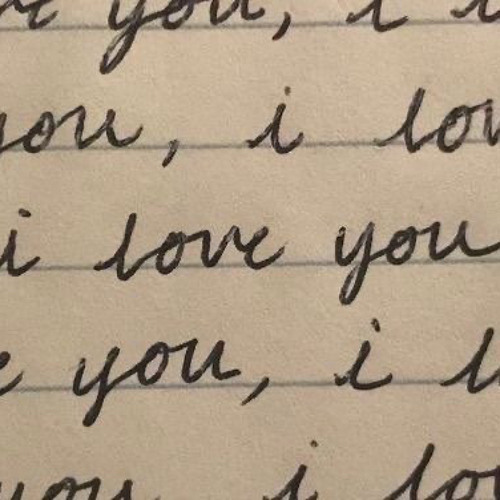 ve you, i l
you, i lov
i love you
e you, i l
you i lo